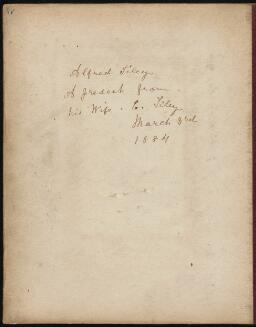 Alfred Tiley
A present from
his Wife. E. Tiley
March 3rd
1884